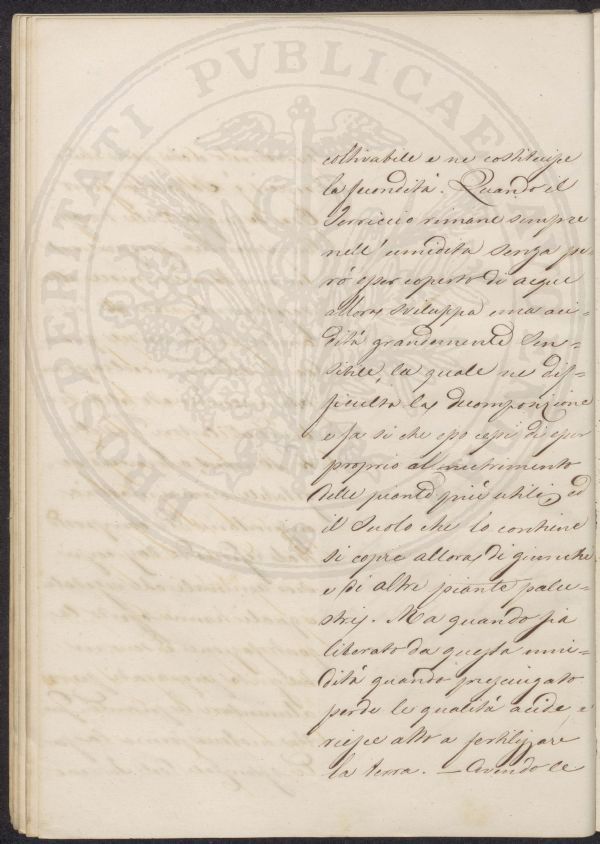 PROSPERITATI PVBLICAE
coltivabile e ne costituisce
la fecondità. Quando il
Terriccio rimane sempre
nell' umidita senza pe-
rò esser coperto di acque
allora sviluppa una aci-
dità grandemente sen-
sibile la quale ne dif-
ficulta la decomposizione
e fa si che esso cessi di esser
proprio al nutrimento
delle piante più utili, ed
il Suolo che lo contiene
si copre allora di giunche
e di altre piante palu-
stri. Ma quando sia
liberato da questa umi-
dità quando prosciugato
perde le qualità acide, e
riesce atto a fertilizzare
la terra. — Avendo le